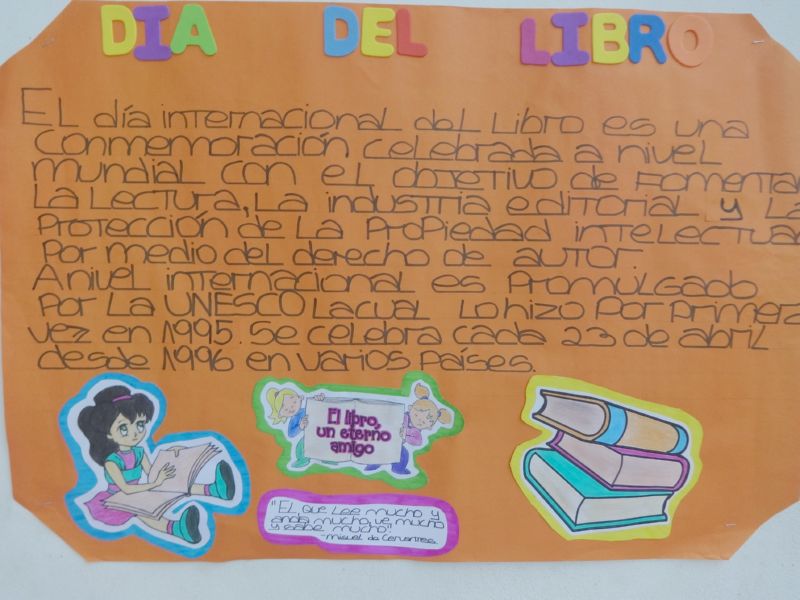 DIA DEL LIBRO
EL día internacional del Libro es una
conmemoración celebrada a nivel
mundial con el objetivo de fomentar
La Lectura, La industria editorial y La
Protección de La Propiedad intelectual
Por medio del derecho de autor.
A nivel internacional es promulgado
Por La UNESCO La cual Lo hizo Por primera
vez en 1995. Se celebra cada 23 de abril
desde 1996 en varios países.
El libro,
un eterno
amigo
"EL que Lee mucho y
anda mucho, ve mucho
y sabe mucho"
-Miguel de Cervantes.